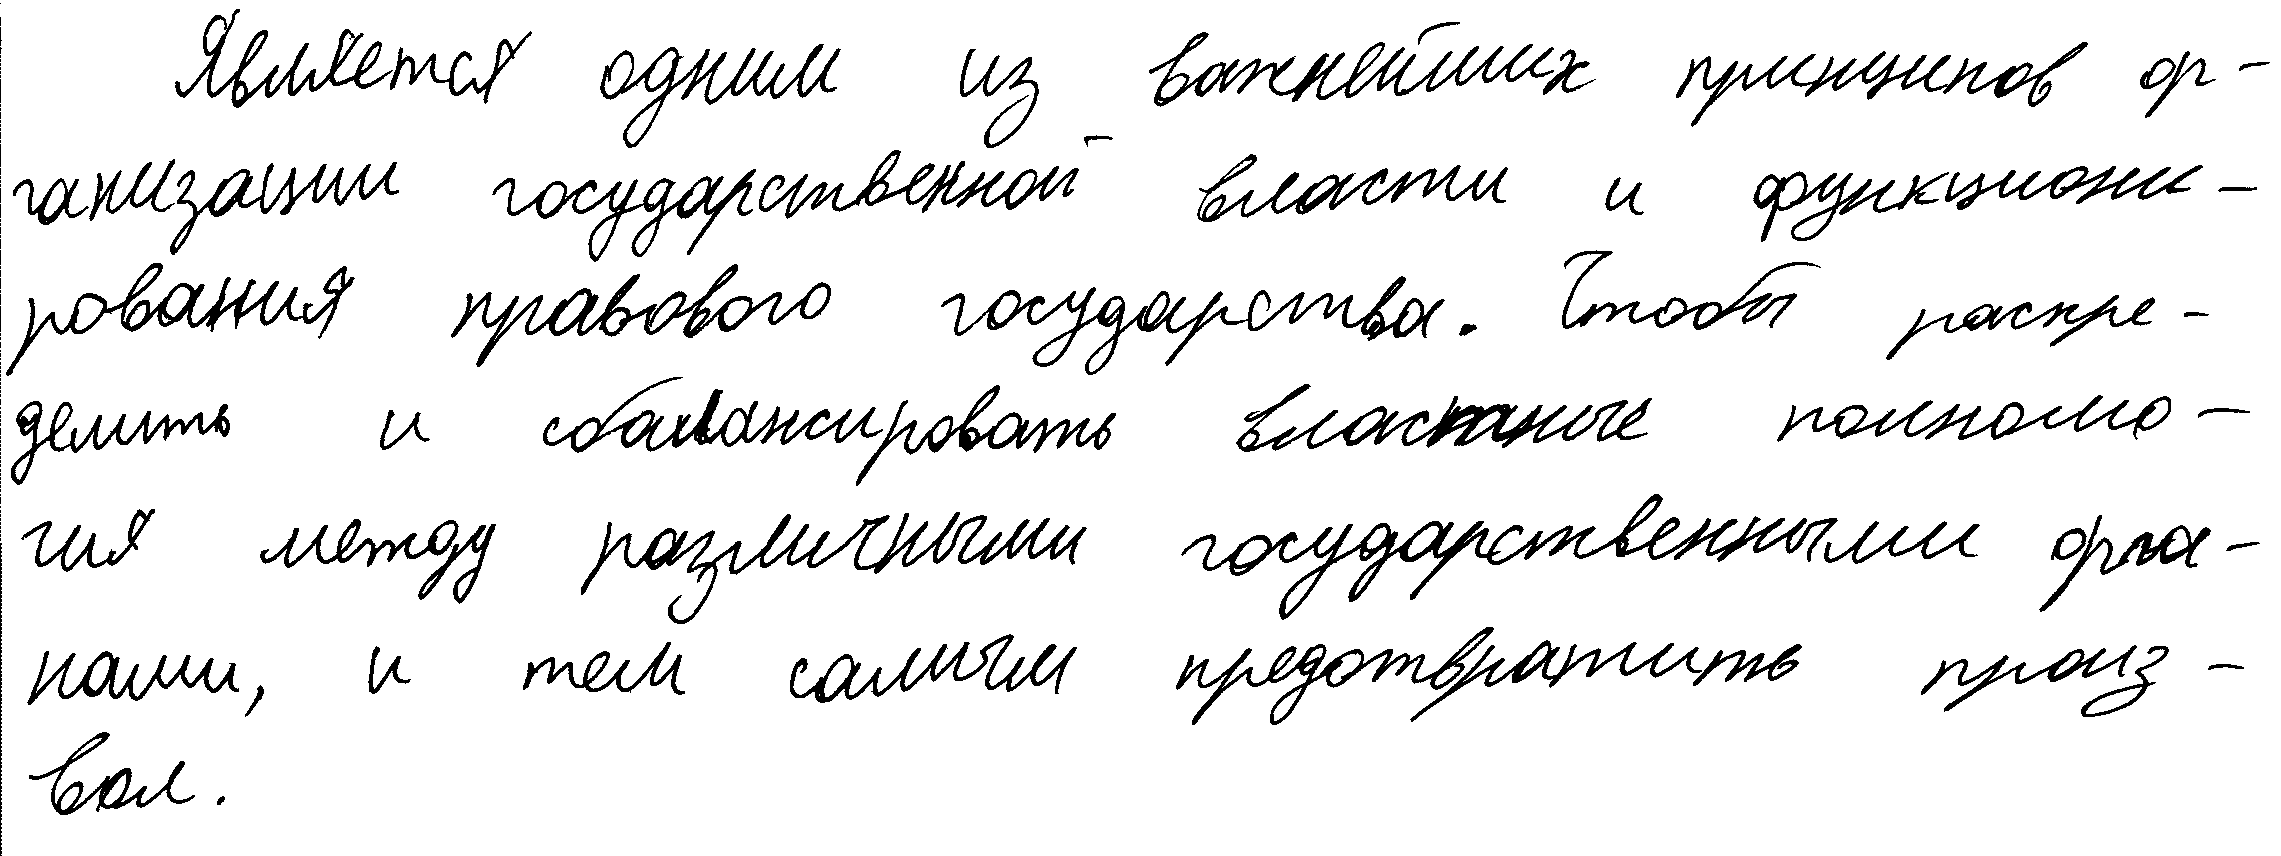 Является одним из важнейших принципов ор-
ганизации государственной власти и функциони-
рования правового государства. Чтобы распре-
делить и сбалансировать властные полномо-
чия между различными государственными орга-
нами, и тем самым предотвратить произ-
вол.